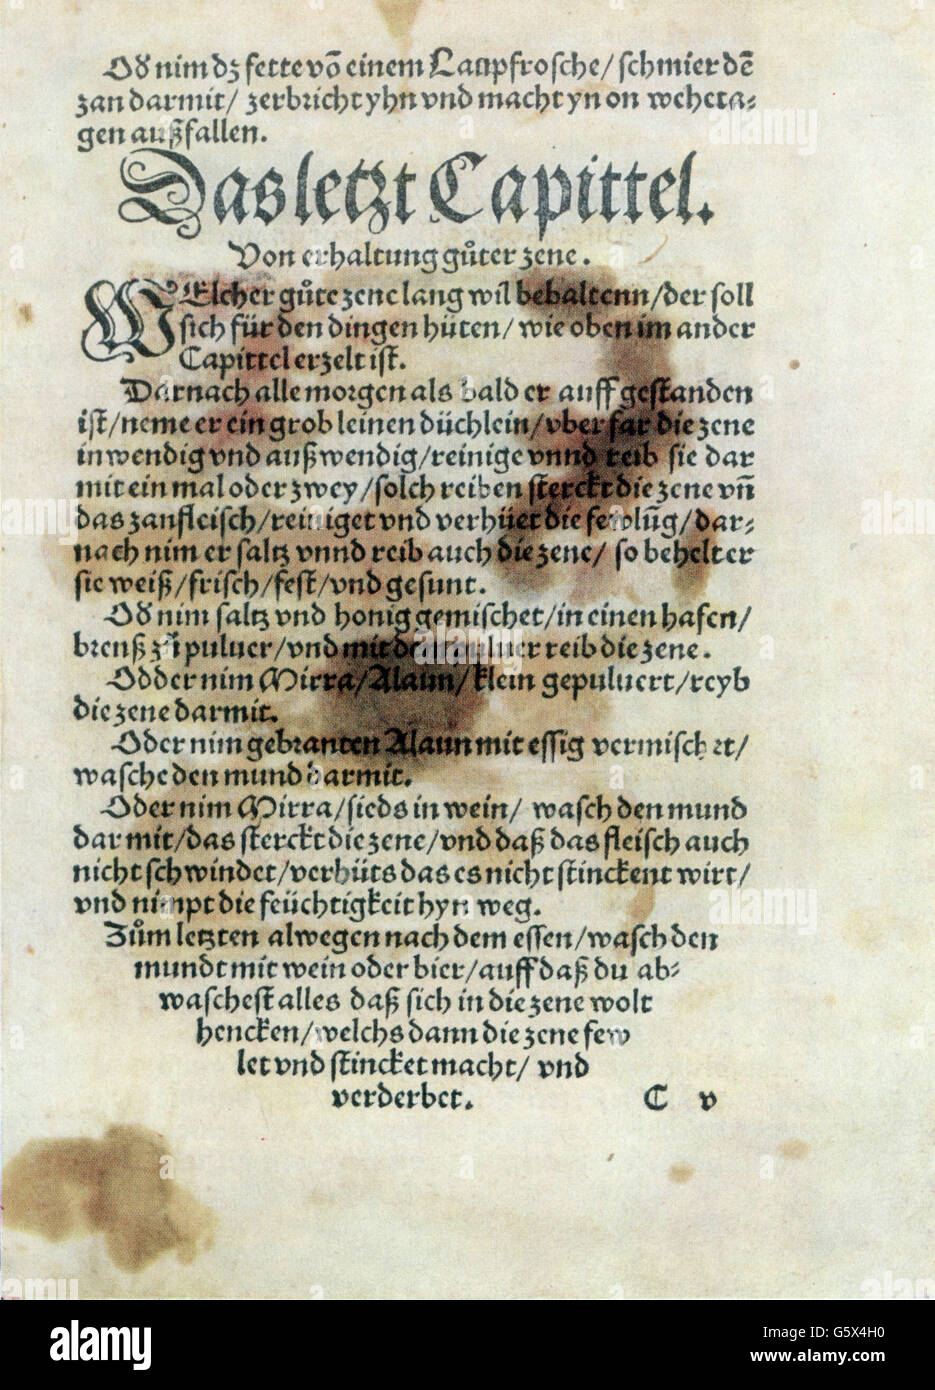 Od nim dz fette vō einem Laupfrosche/ schmier dē
zan darmit/ zerbricht yhn vnd macht yn on weheta⸗
gen außfallen.
Das letzt Capittel.
Von erhaltung gůter zene.
WElcher gůte zene lang wil behaltenn/ der soll
sich für den dingen hüten/ wie oben im ander
Capittel erzelt ist.
Darnach alle morgen als bald er auff gestanden
ist/ neme er ein grob leinen düchlein/ vber far die zene
inwendig vnd außwendig/ reinige vnnd reib sie dar
mit ein mal oder zwey/ solch reiben sterckt die zene vñ
das zanfleisch/ reiniget vnd verhüet die fewlũg/ dar⸗
nach nim er saltz vnnd reib auch die zene/ so behelt er
sie weiß/ frisch/ fest/ vnd gesunt.
Od nim saltz vnd honig gemischet/ in einen hafen/
brenß puluer/ vnd mit puluer reib die zene.
Odder nim Mirra/ Alaun/ klein gepuluert/ reyb
die zene darmit.
Oder nim gebranten Alaun mit essig vermischet/
wasche den mund darmit.
Oder nim Mirra/ sieds in wein/ wasch den mund
dar mit/ das sterckt die zene/ vnd daß das fleisch auch
nicht schwindet/ verhüts das es nicht stinckent wirt/
vnd nimpt die feüchtigkeit hyn weg.
Zům letzten alwegen nach dem essen/ wasch den
mundt mit wein oder bier/ auff daß du ab⸗
waschest alles daß sich in die zene wolt
hencken/ welchs dann die zene few
let vnd stincket macht/ vnd
verderbet. C v
alamy
Image ID: G5X4H0
www.alamy.com